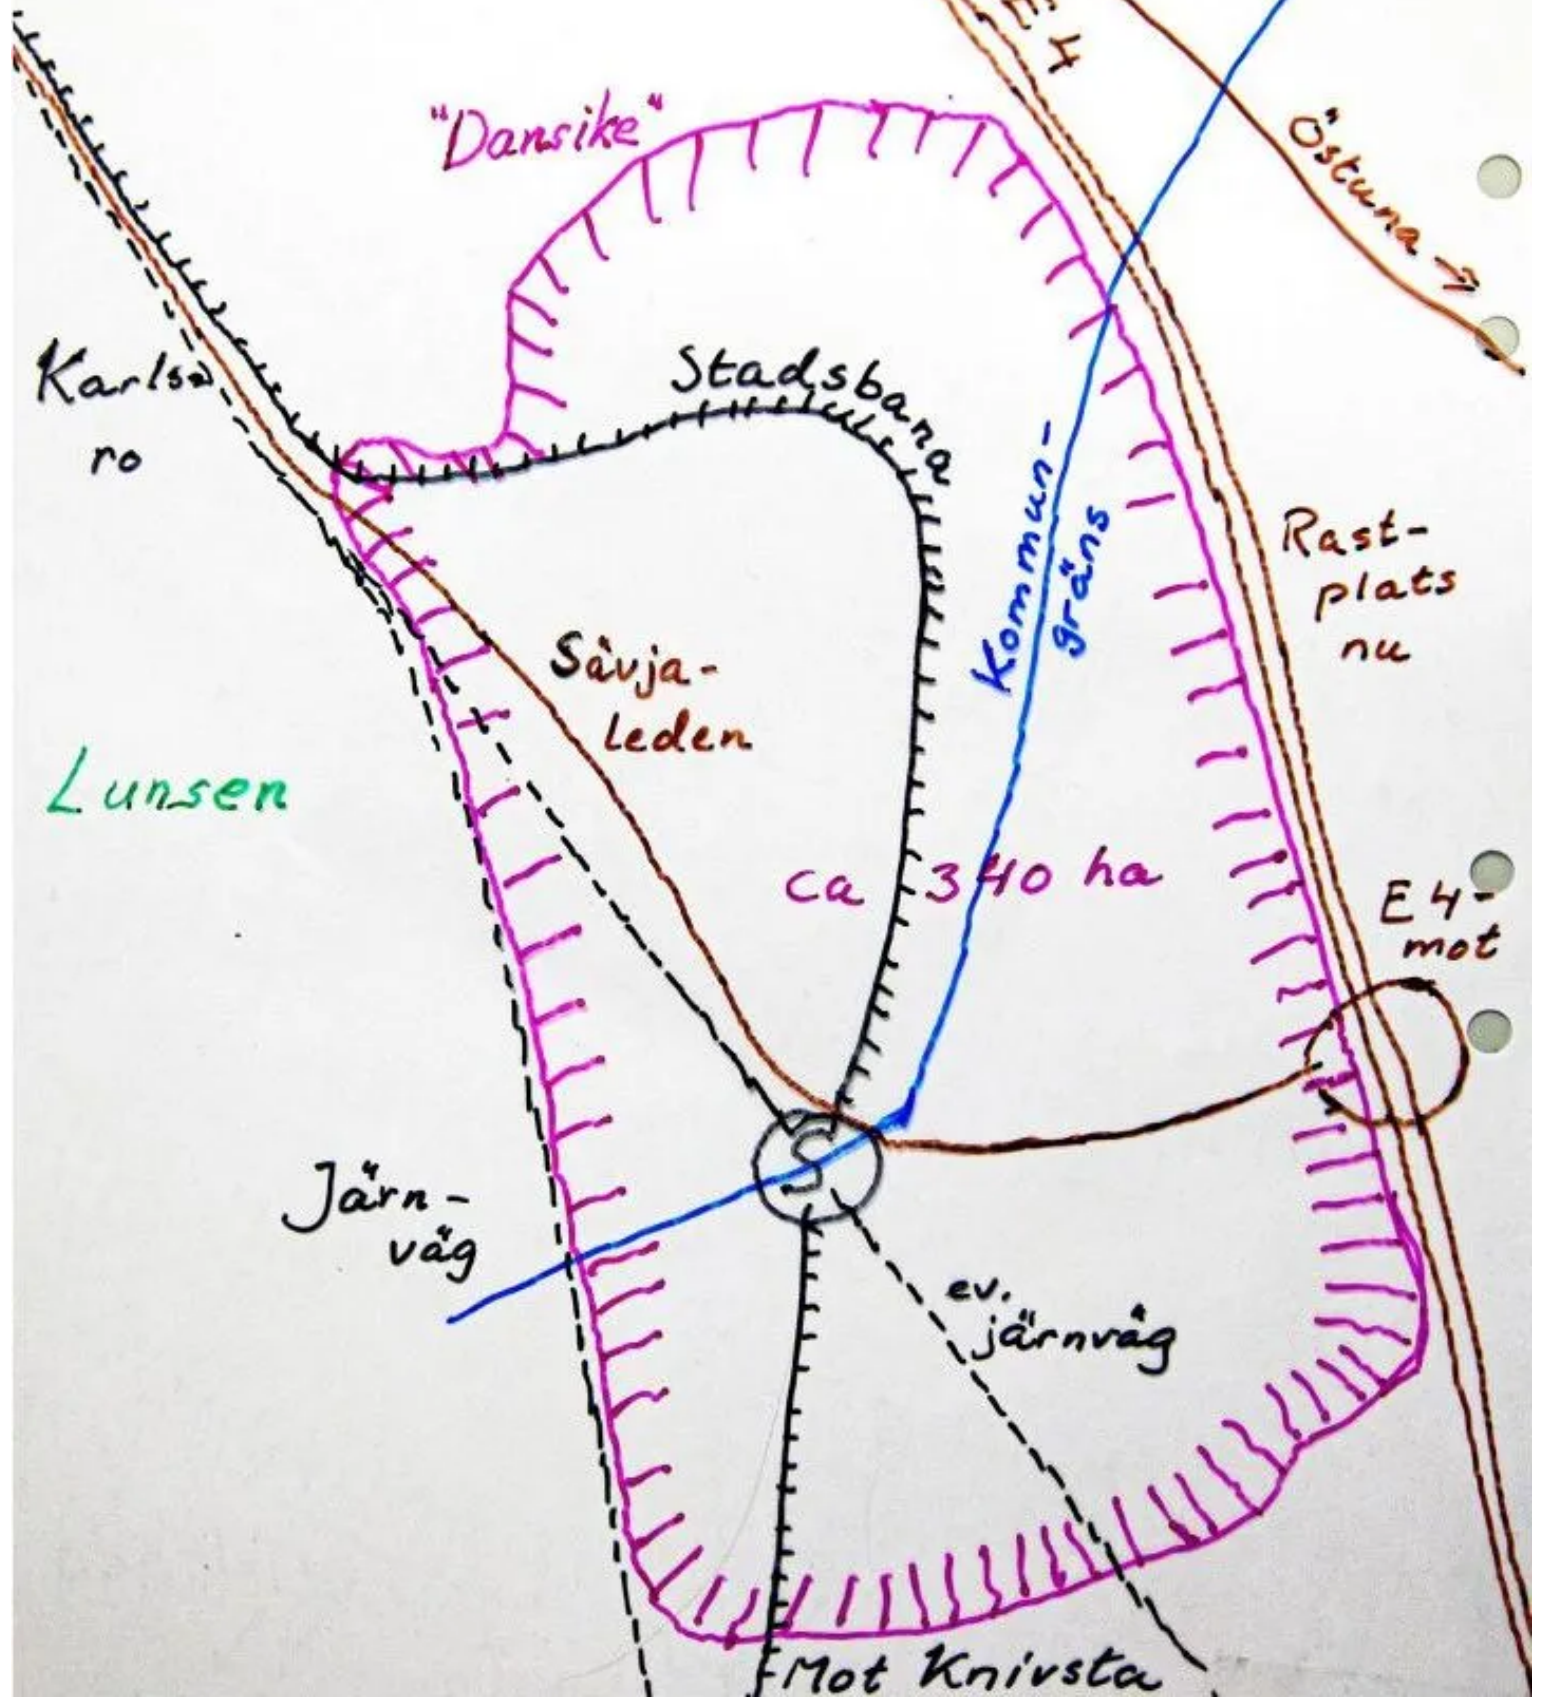 E4
"Dansike"
Östuna →
Karls-
ro
Stadsbana
Kommun-
gräns
Rast-
plats
nu
Sävja-
leden
Lunsen
ca 340 ha
E4-
mot
S
Järn-
väg
ev.
järnväg
Mot Knivsta